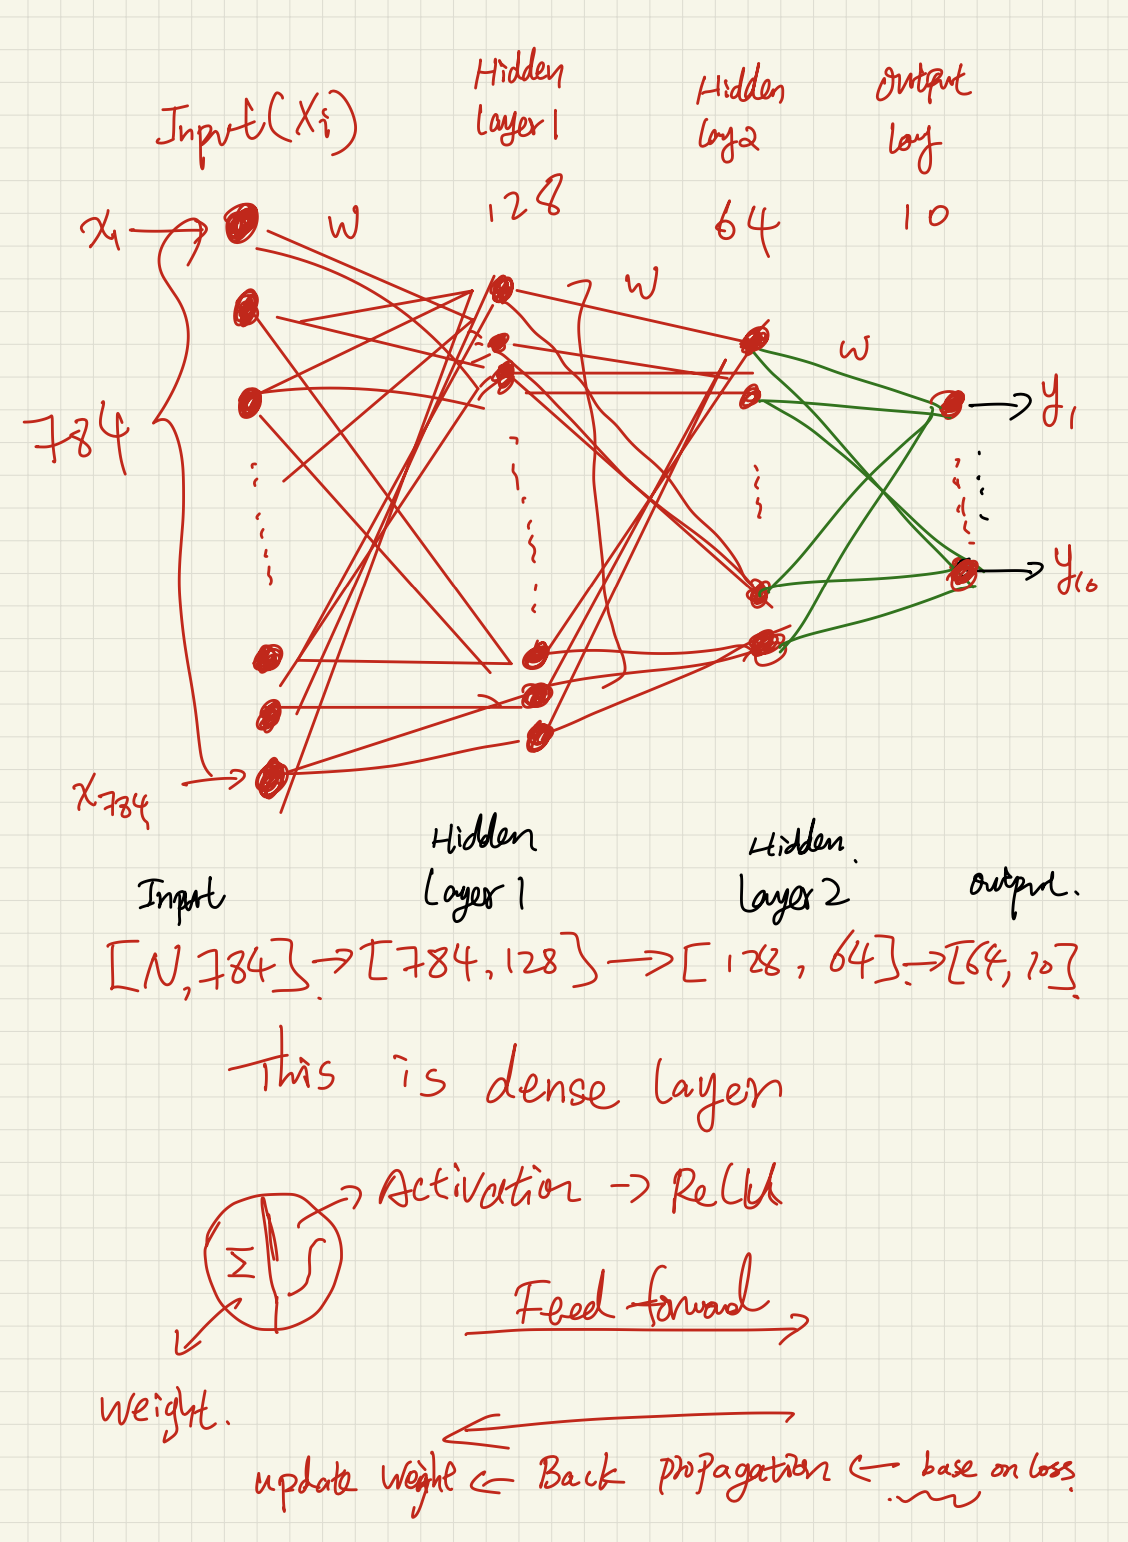 Input(Xi)
Hidden
Layer 1
Hidden
Lay2
Output
Lay
x1
W
128
64
10
W
W
784
y1
y10
x784
Input
Hidden
Layer 1
Hidden
Layer 2
output.
[N,784] → [784,128] → [128, 64] → [64,10]
This is dense layer
Activation → ReLU
Σ
∫
Feed forward
Weight.
update weight ← Back propagation ← base on loss